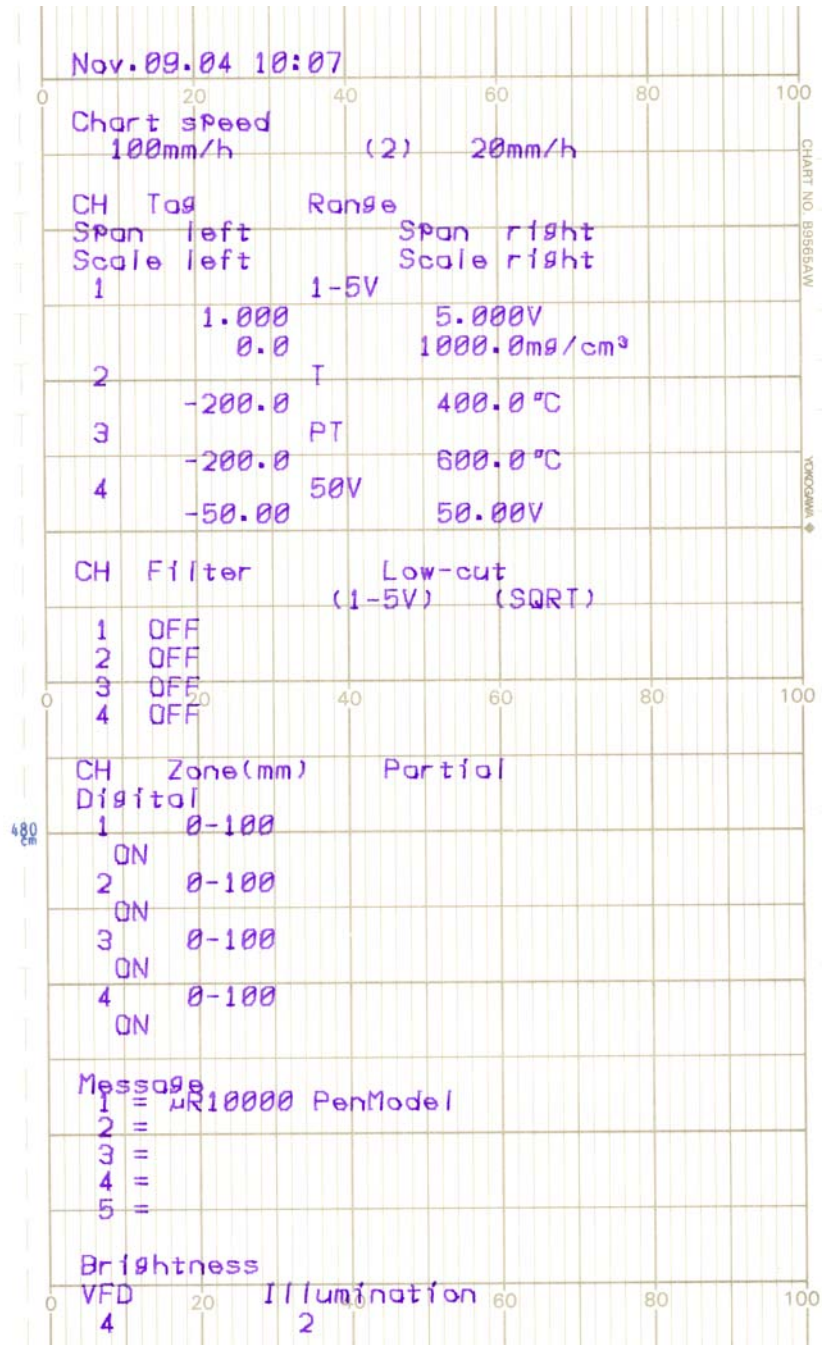 Nov.09.04 10:07
0 20 40 60 80 100
Chart speed
100mm/h (2) 20mm/h
CHART NO. B9565AW
CH Tag Range
Span left Span right
Scale left Scale right
1 1-5V
1.000 5.000V
0.0 1000.0mg/cm³
2 T
-200.0 400.0°C
3 PT
-200.0 600.0°C
YOKOGAWA ◆
4 50V
-50.00 50.00V
CH Filter Low-cut
(1-5V) (SQRT)
1 OFF
2 OFF
3 OFF
0 20 40 60 80 100
4 OFF
CH Zone(mm) Partial
Digital
480 cm
1 0-100
ON
2 0-100
ON
3 0-100
ON
4 0-100
ON
Message
1 = µR10000 PenModel
2 =
3 =
4 =
5 =
Brightness
VFD Illumination
0 20 40 60 80 100
4 2